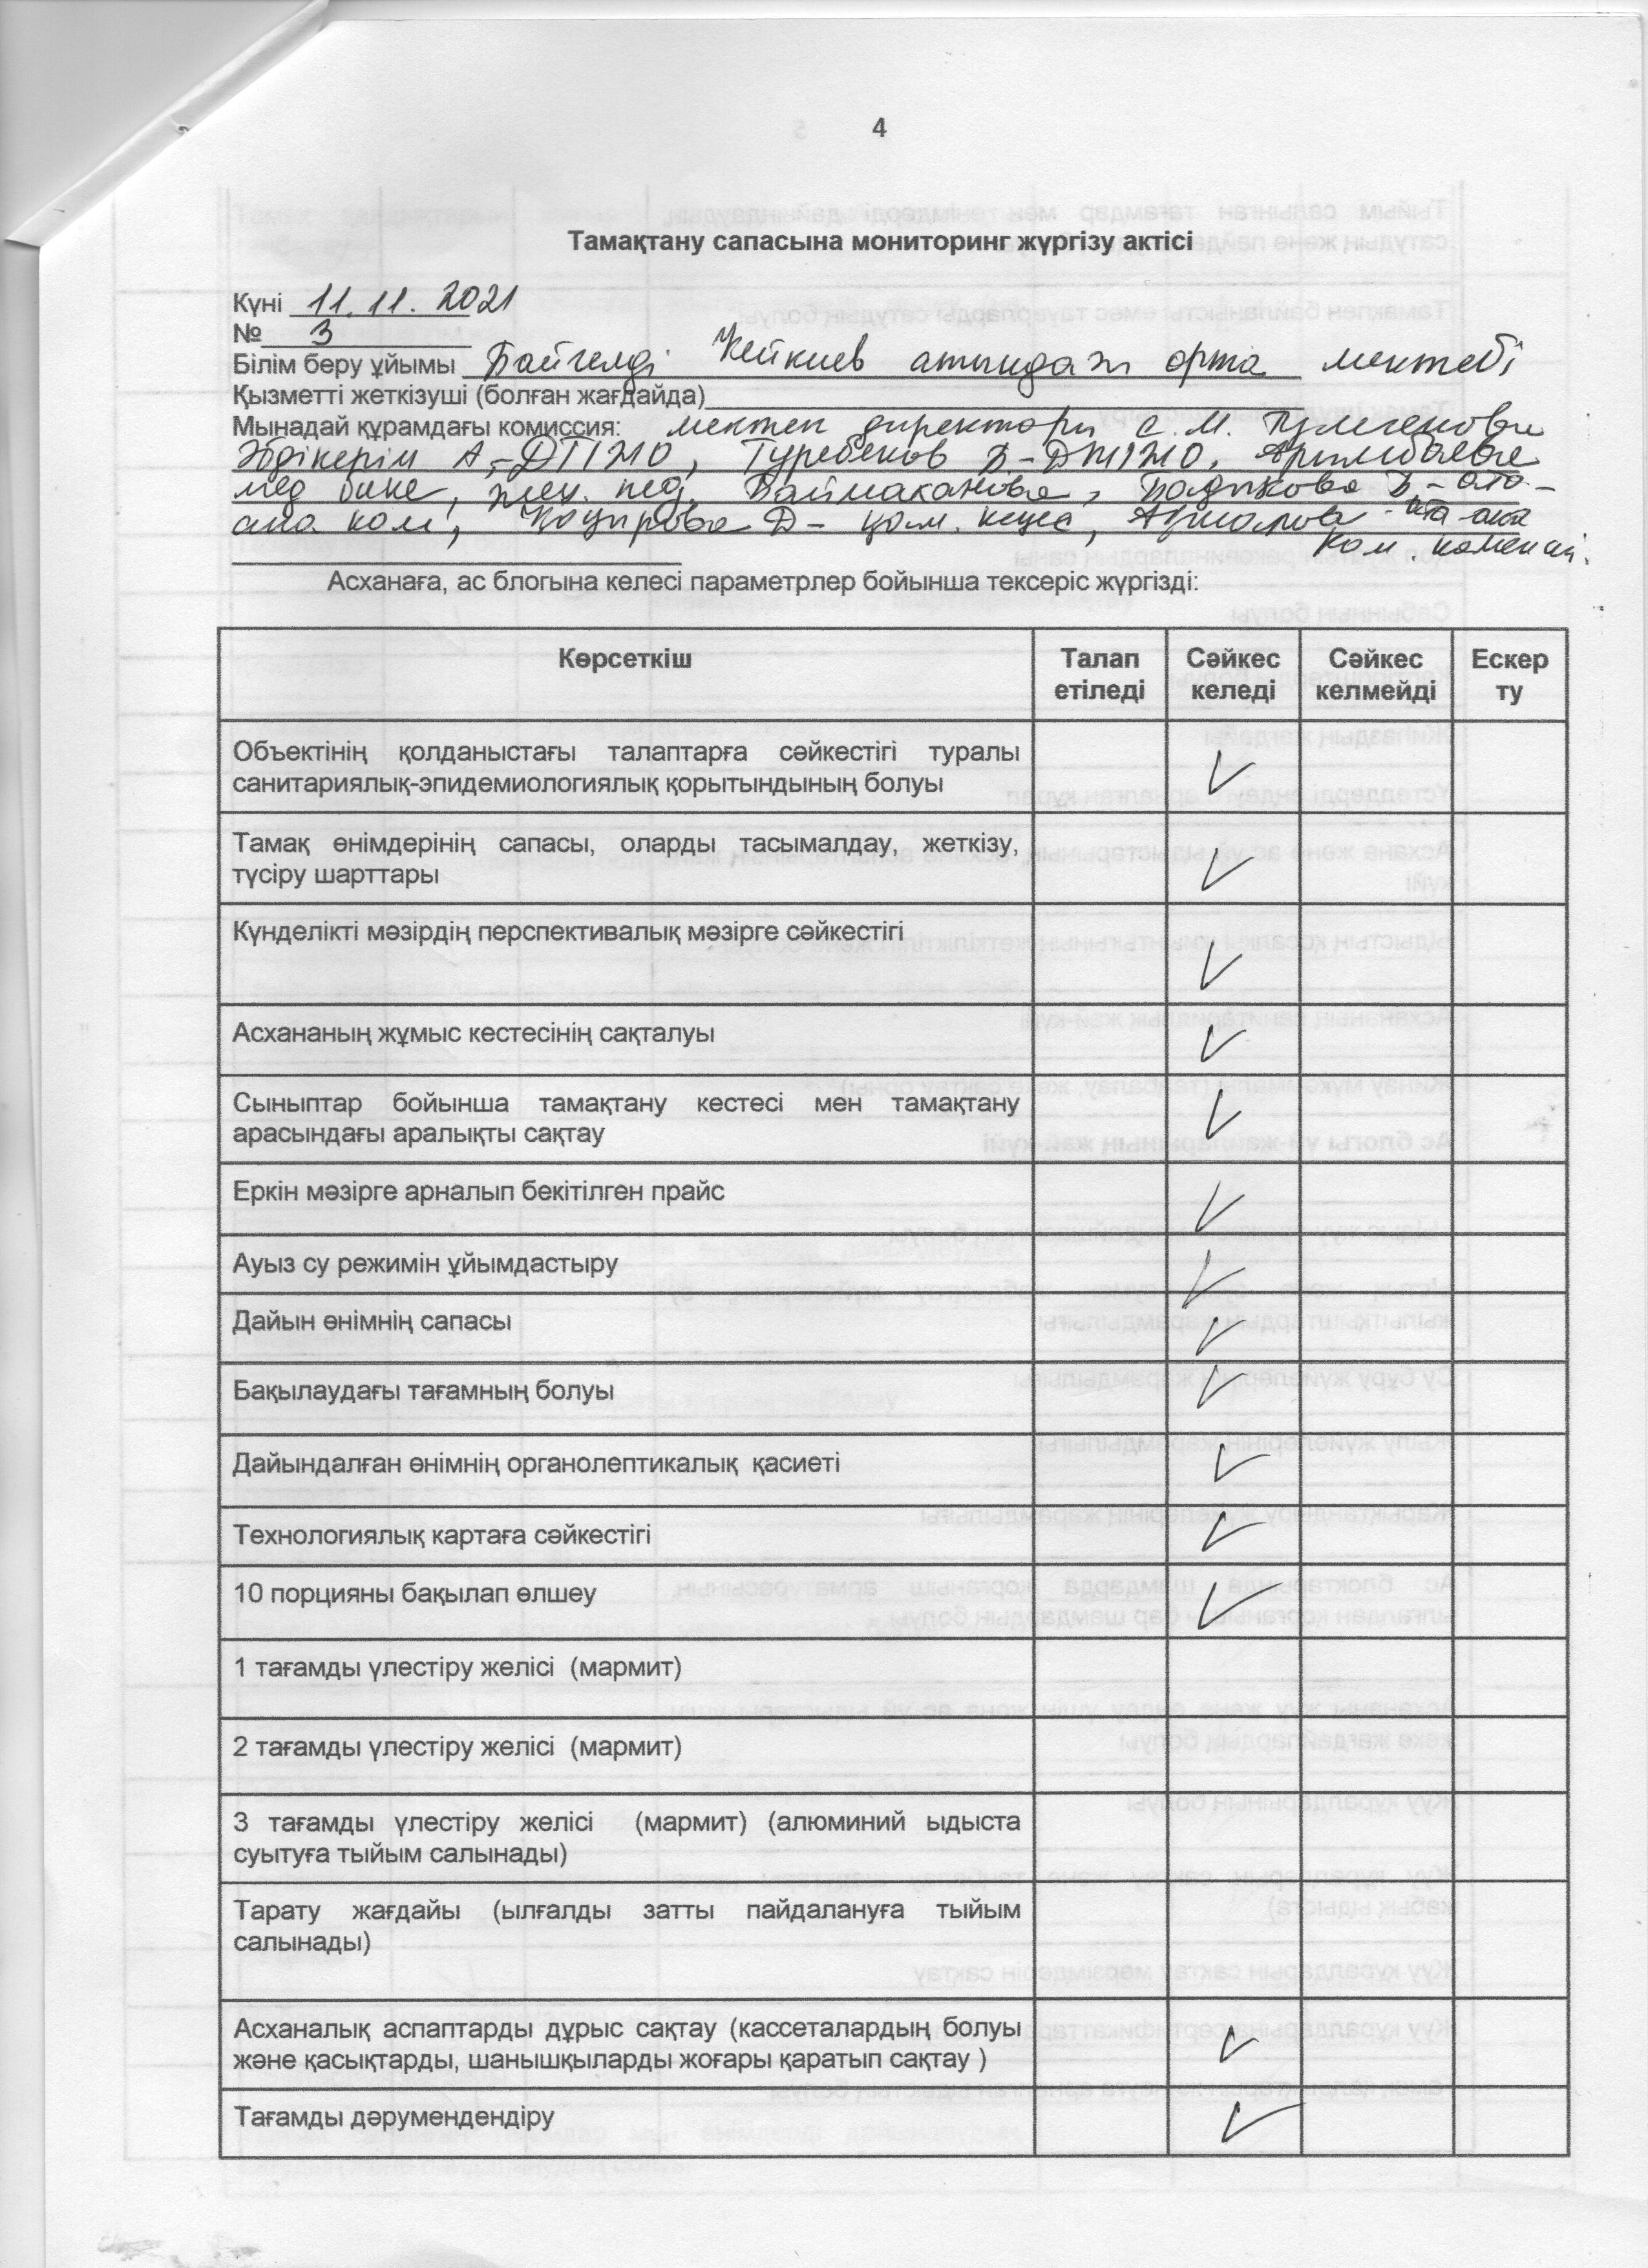 4
Тамақтану сапасына мониторинг жүргізу актісі
Күні 11.11.2021
№ 3
Білім беру ұйымы Байгелді атындағы орта мектебі
Қызметті жеткізуші (болған жағдайда)
Мынадай құрамдағы комиссия: мектеп директоры С.М.
Әбдікерім А,-ДТІЖО, Туребеков Б-
мед бике, Баймаханова,
ата-ана
Асханаға, ас блогына келесі параметрлер бойынша тексеріс жүргізді:
Көрсеткіш Талап Сәйкес Сәйкес Ескер
етіледі келеді келмейді ту
Объектінің қолданыстағы талаптарға сәйкестігі туралы
санитариялық-эпидемиологиялық қорытындының болуы
Тамақ өнімдерінің сапасы, оларды тасымалдау, жеткізу,
түсіру шарттары
Күнделікті мәзірдің перспективалық мәзірге сәйкестігі
Асхананың жұмыс кестесінің сақталуы
Сыныптар бойынша тамақтану кестесі мен тамақтану
арасындағы аралықты сақтау
Еркін мәзірге арналып бекітілген прайс
Ауыз су режимін ұйымдастыру
Дайын өнімнің сапасы
Бақылаудағы тағамның болуы
Дайындалған өнімнің органолептикалық қасиеті
Технологиялық картаға сәйкестігі
10 порцияны бақылап өлшеу
1 тағамды үлестіру желісі (мармит)
2 тағамды үлестіру желісі (мармит)
3 тағамды үлестіру желісі (мармит) (алюминий ыдыста
суытуға тыйым салынады)
Тарату жағдайы (ылғалды затты пайдалануға тыйым
салынады)
Асханалық аспаптарды дұрыс сақтау (кассеталардың болуы
және қасықтарды, шанышқыларды жоғары қаратып сақтау )
Тағамды дәрумендендіру